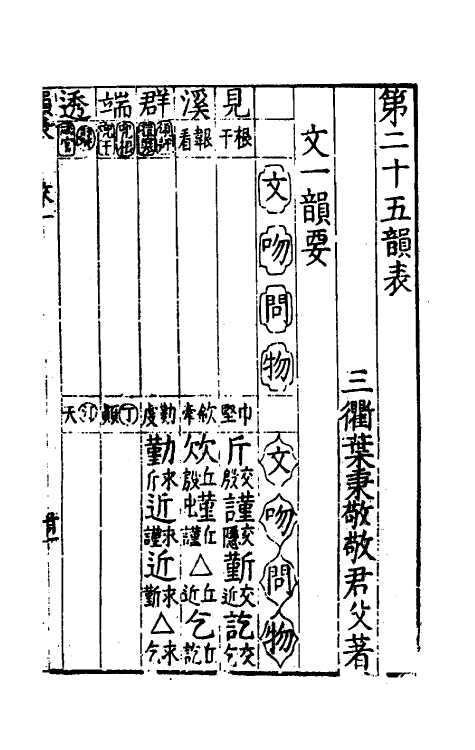 第二十五韻表
三衢葉秉敬敬君父著
文一韻要
文 吻 問 物
文 吻 問 物
見 根干
巾堅
斤 交殷
謹 交隱
靳 交近
訖 交乞
溪 報看
欽牽
欸 丘殷
丘謹
△ 丘近
乞 丘訖
群
勤虔
勤 求斤
近 求謹
近 求靳
△ 求乞
端
丁顛
透
天